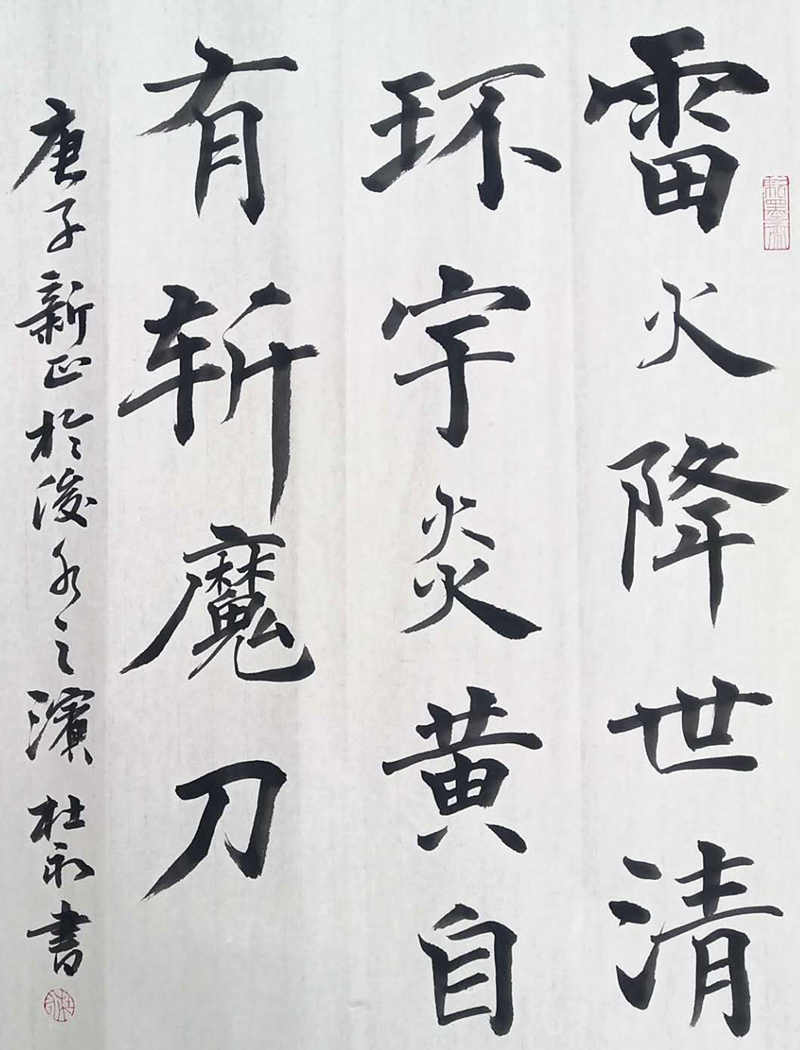 雷火降世清
环宇炎黄自
有斩魔刀
庚子新正於浚水之濱 杜永書